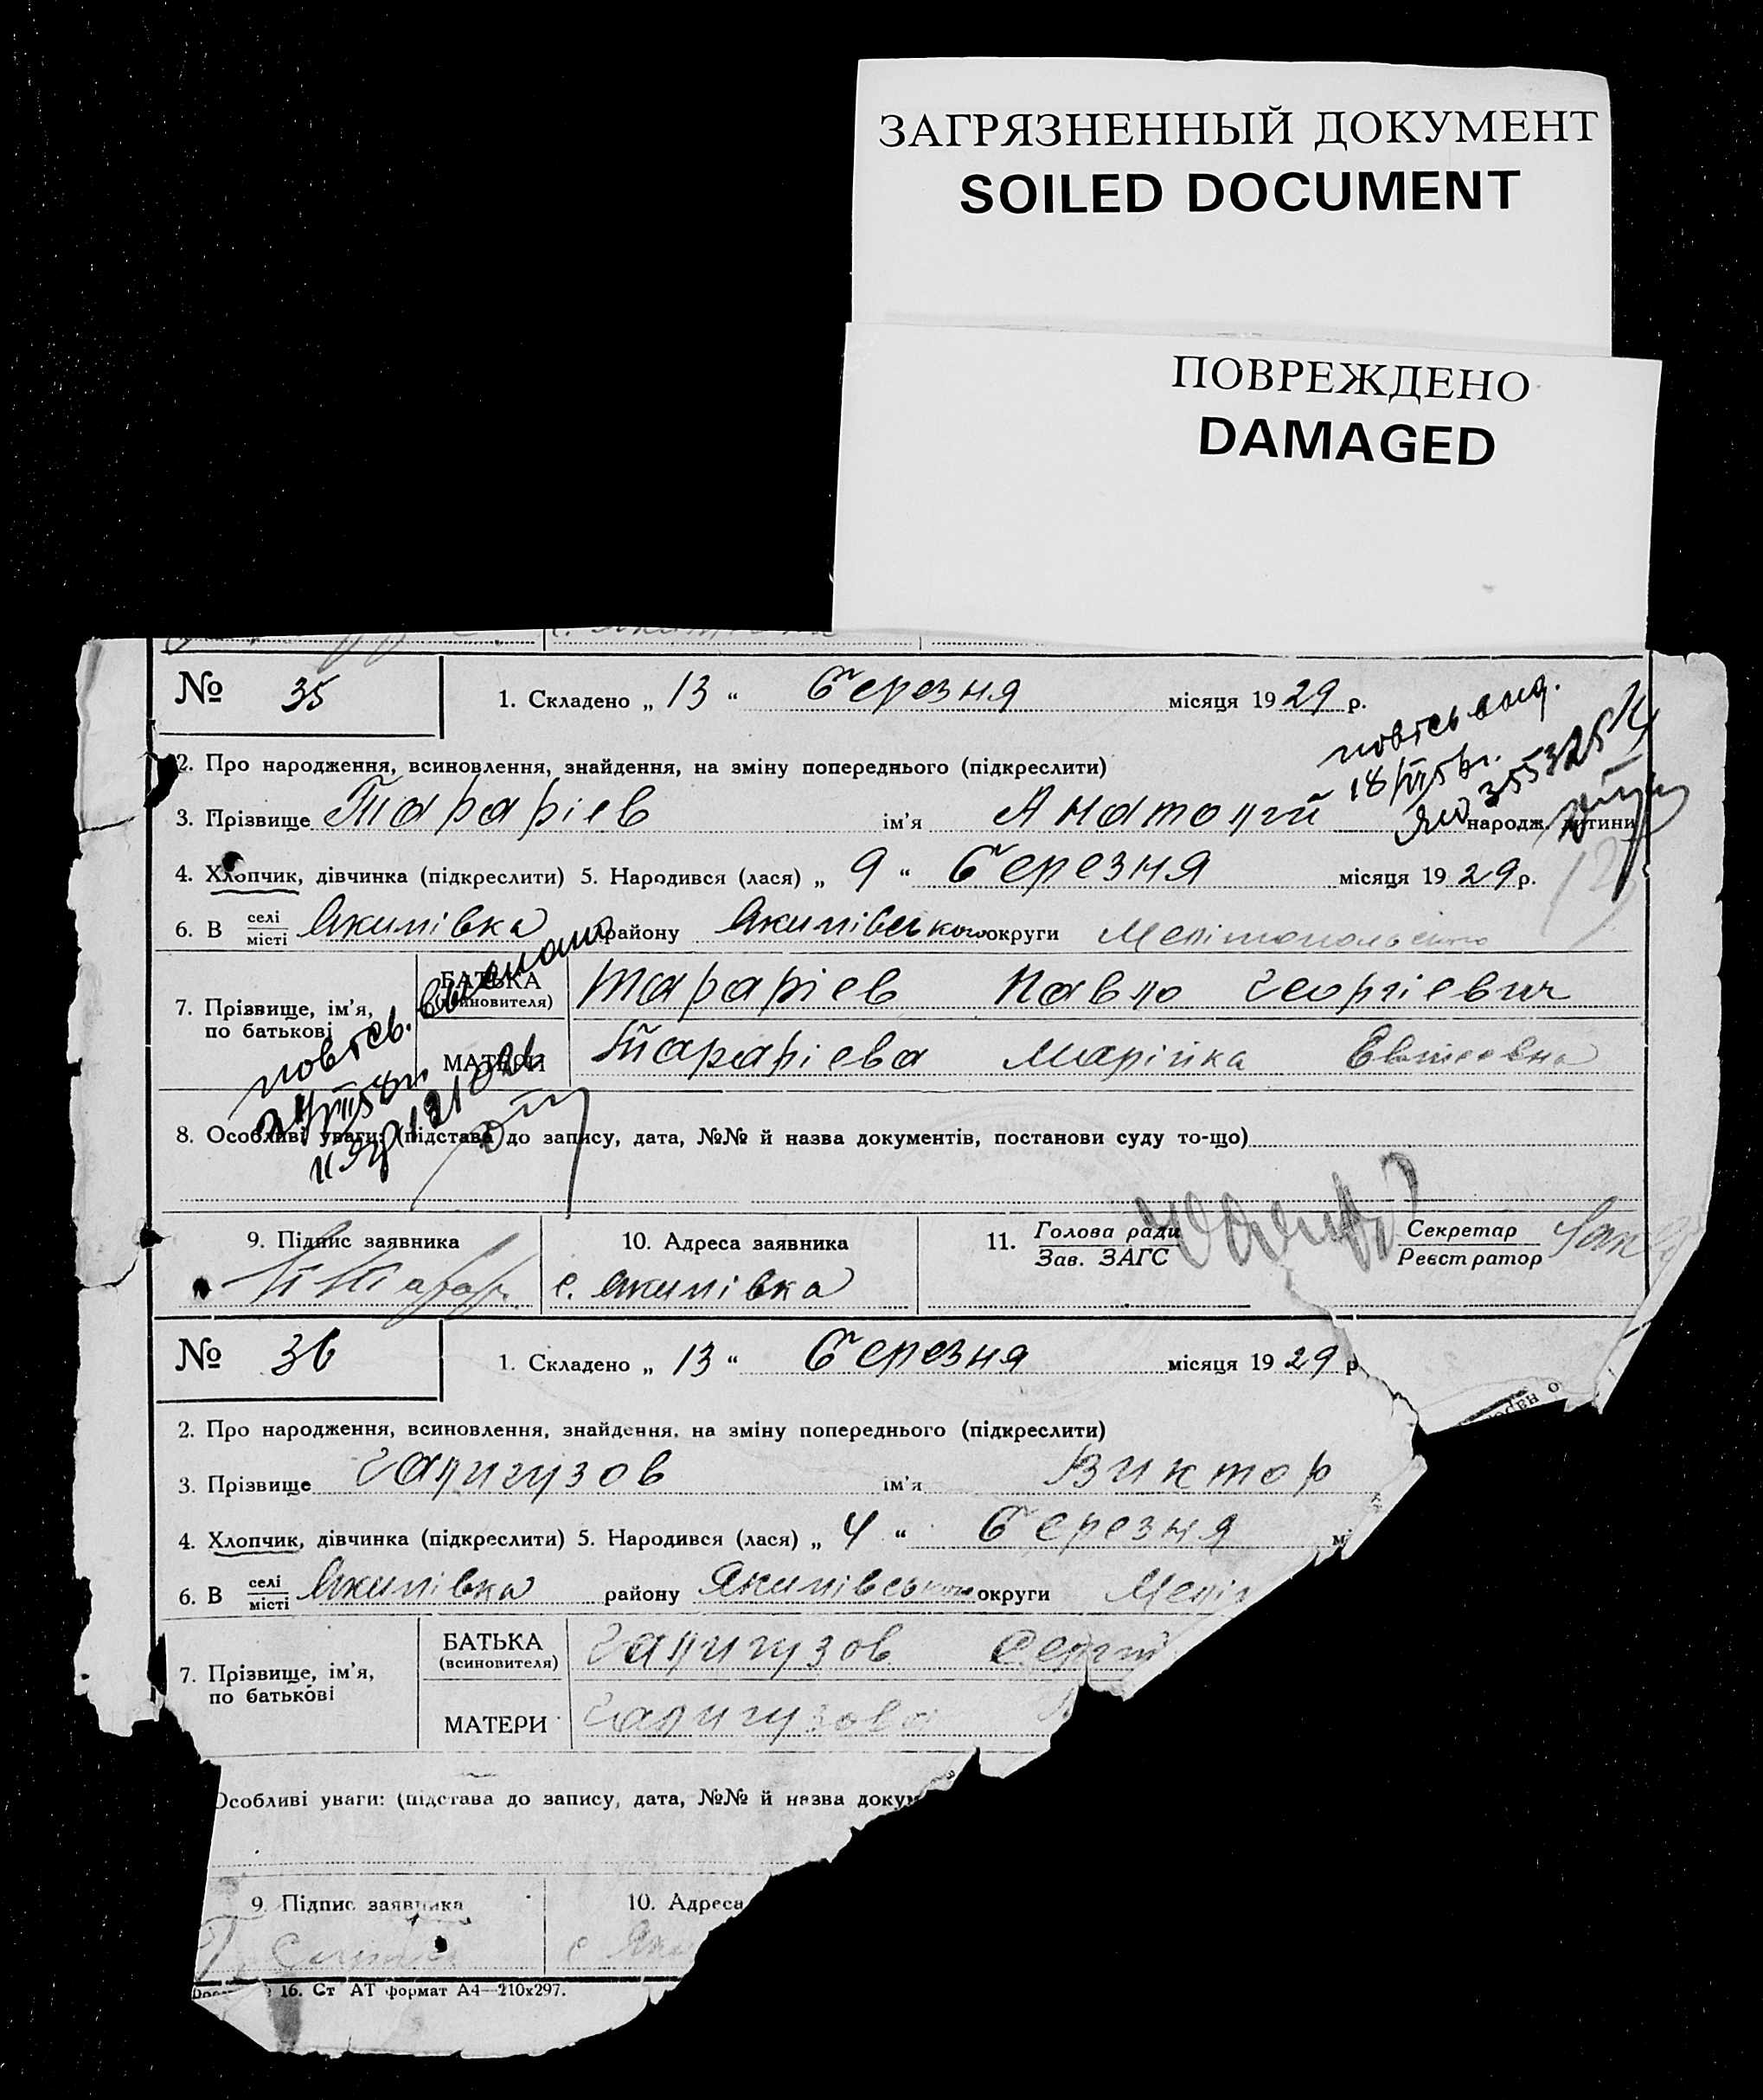 ЗАГРЯЗНЕННЫЙ ДОКУМЕНТ
SOILED DOCUMENT
ПОВРЕЖДЕНО
DAMAGED
№ 35
1. Складено „ 13 “ березня місяця 1929 р.
2. Про народження, всиновлення, знайдення, на зміну попереднього (підкреслити)
3. Прізвище Тараріев ім'я Анатолій народж. дитини
4. Хлопчик, дівчинка (підкреслити) 5. Народився (лася) „ 9 “ березня місяця 1929 р.
6. В селі/місті Якимівка району Якимівського округи Мелітопольської
7. Прізвище, ім'я, по батькові
БАТЬКА (всиновителя) Тараріев Павло Георгіевич
МАТЕРИ Тараріева Марійка
8. Особливі уваги: (підстава до запису, дата, №№ й назва документів, постанови суду то-що)
9. Підпис заявника
10. Адреса заявника
с. Якимівка
11. Голова ради/Зав. ЗАГС
Секретар/Реєстратор
№ 36
1. Складено „ 13 “ березня місяця 1929 р
2. Про народження, всиновлення, знайдення, на зміну попереднього (підкреслити)
3. Прізвище Галигузов ім'я Виктор
4. Хлопчик, дівчинка (підкреслити) 5. Народився (лася) „ 4 “ березня мі
6. В селі/місті Якимівка району Якимівського округи Меліт
7. Прізвище, ім'я, по батькові
БАТЬКА (всиновителя) Галигузов Сергій
МАТЕРИ Галигузова
Особливі уваги: (підстава до запису, дата, №№ й назва докум
9. Підпис заявника
10. Адреса
с Яки
16. Ст АТ формат А4—210x297.